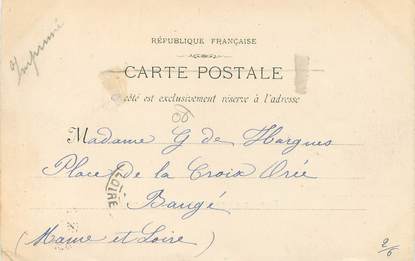 Imprimé
RÉPUBLIQUE FRANÇAISE
CARTE POSTALE
Ce côté est exclusivement réservé à l'adresse
Madame G de Hargues
Place de la Croix Orée
LOIRE
Baugé
(Maine et Loire)
2/6